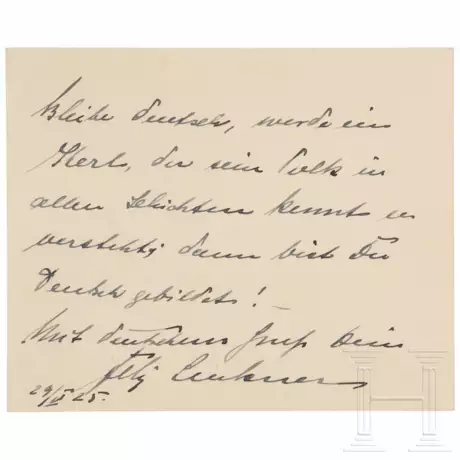 Bleibe deutsch, werde ein
Kerl, der sein Volk in
allen Schichten kennt u
versteht, dann bist Du
Deutsch gebildet! –
Mit deutschem Gruß Dein
Felix Luckner
29/II 25.